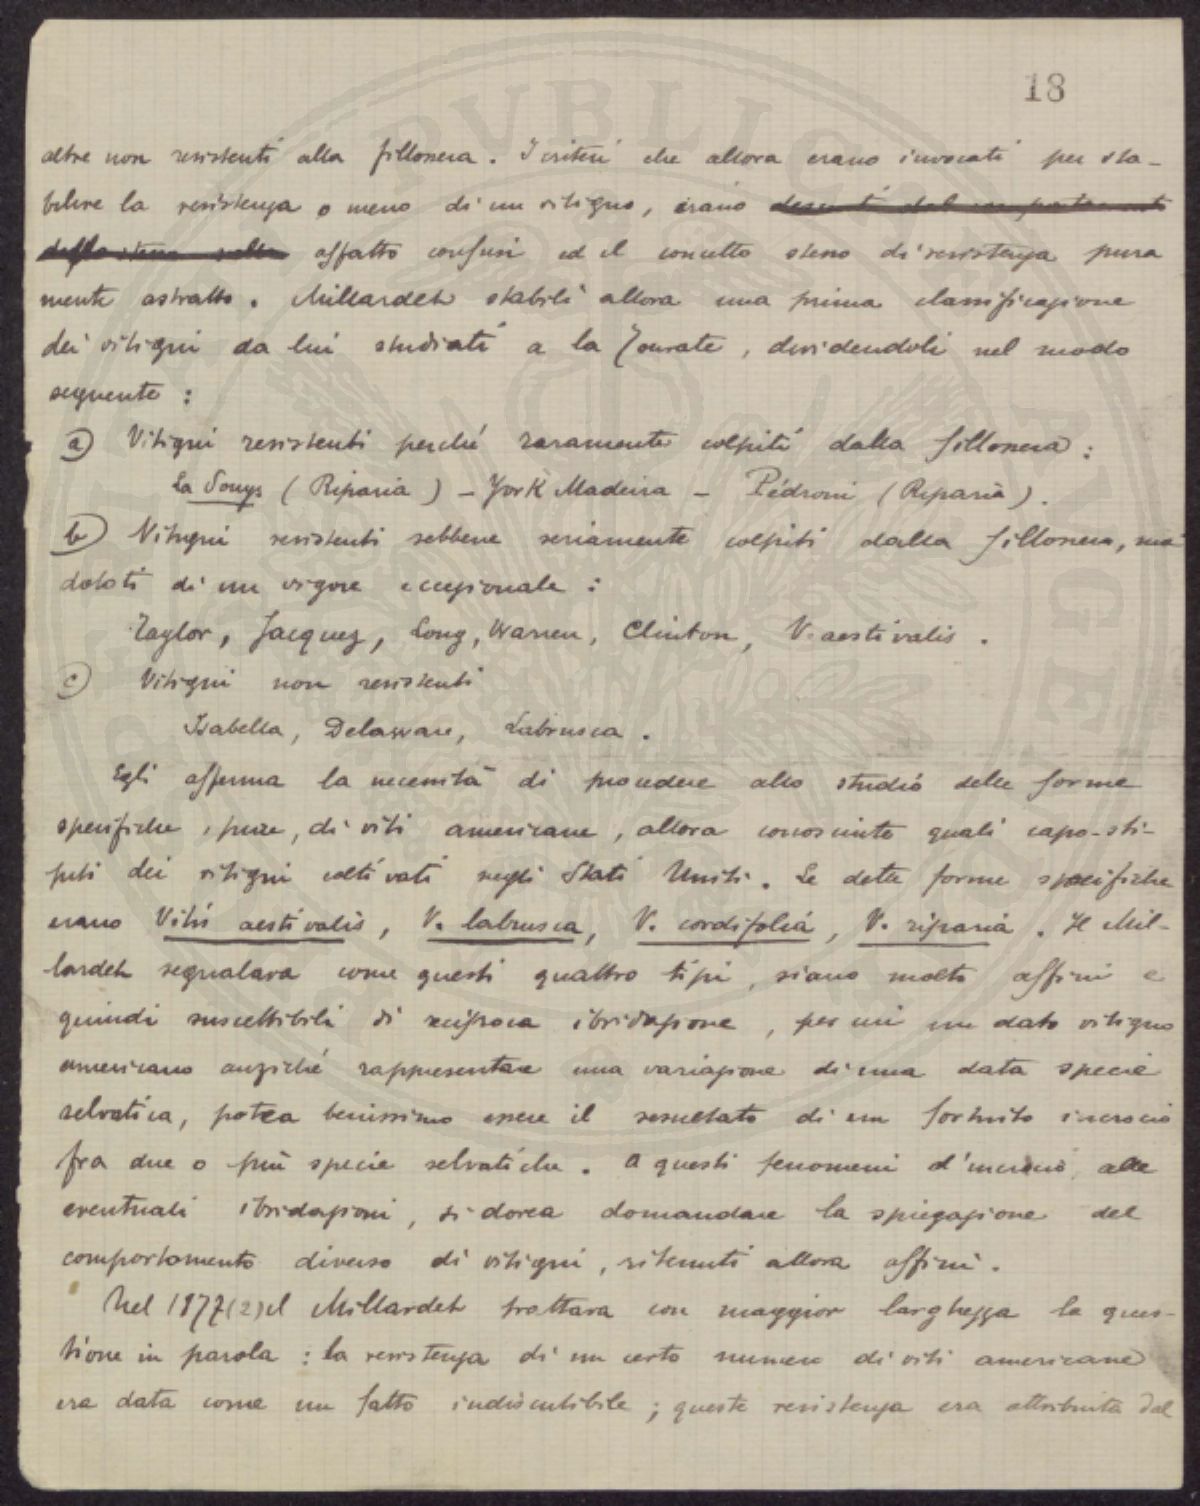 18
altre non resistenti alla fillossera. I criteri che allora erano invocati per sta-
bilire la resistenza o meno di un vitigno, erano
affatto confusi ed il concetto stesso di resistenza pura
mente astratto. Millardet stabilì allora una prima classificazione
dei vitigni da lui studiati a la Tourate, dividendoli nel modo
seguente:
a) Vitigni resistenti perché raramente colpiti dalla fillossera:
La Souys (Riparia) - York Madeira - Pédroni (Riparia).
b) Vitigni resistenti sebbene seriamente colpiti dalla fillossera, ma
dotati di un vigore eccezionale:
Taylor, Jacquez, Long, Warren, Clinton, V. aestivalis.
c) Vitigni non resistenti
Isabella, Delaware, Labrusca.
Egli afferma la necessità di procedere allo studio delle forme
specifiche, pure, di viti americane, allora conosciute quali capo-sti-
piti dei vitigni coltivati negli Stati Uniti. Le dette forme specifiche
erano Vitis aestivalis, V. labrusca, V. cordifolia, V. riparia. Il Mil-
lardet segnalava come questi quattro tipi, siano molto affini e
quindi suscettibili di reciproca ibridazione, per cui un dato vitigno
americano anziché rappresentare una variazione di una data specie
selvatica, potea benissimo essere il resultato di un fortuito incrocio
fra due o più specie selvatiche. A questi fenomeni d'incrocio, alle
eventuali ibridazioni, si dovea domandare la spiegazione del
comportamento diverso di vitigni, ritenuti allora affini.
Nel 1877(2) il Millardet trattava con maggior larghezza la ques-
tione in parola: la resistenza di un certo numero di viti americane
era data come un fatto indiscutibile; queste resistenza era attribuita dal